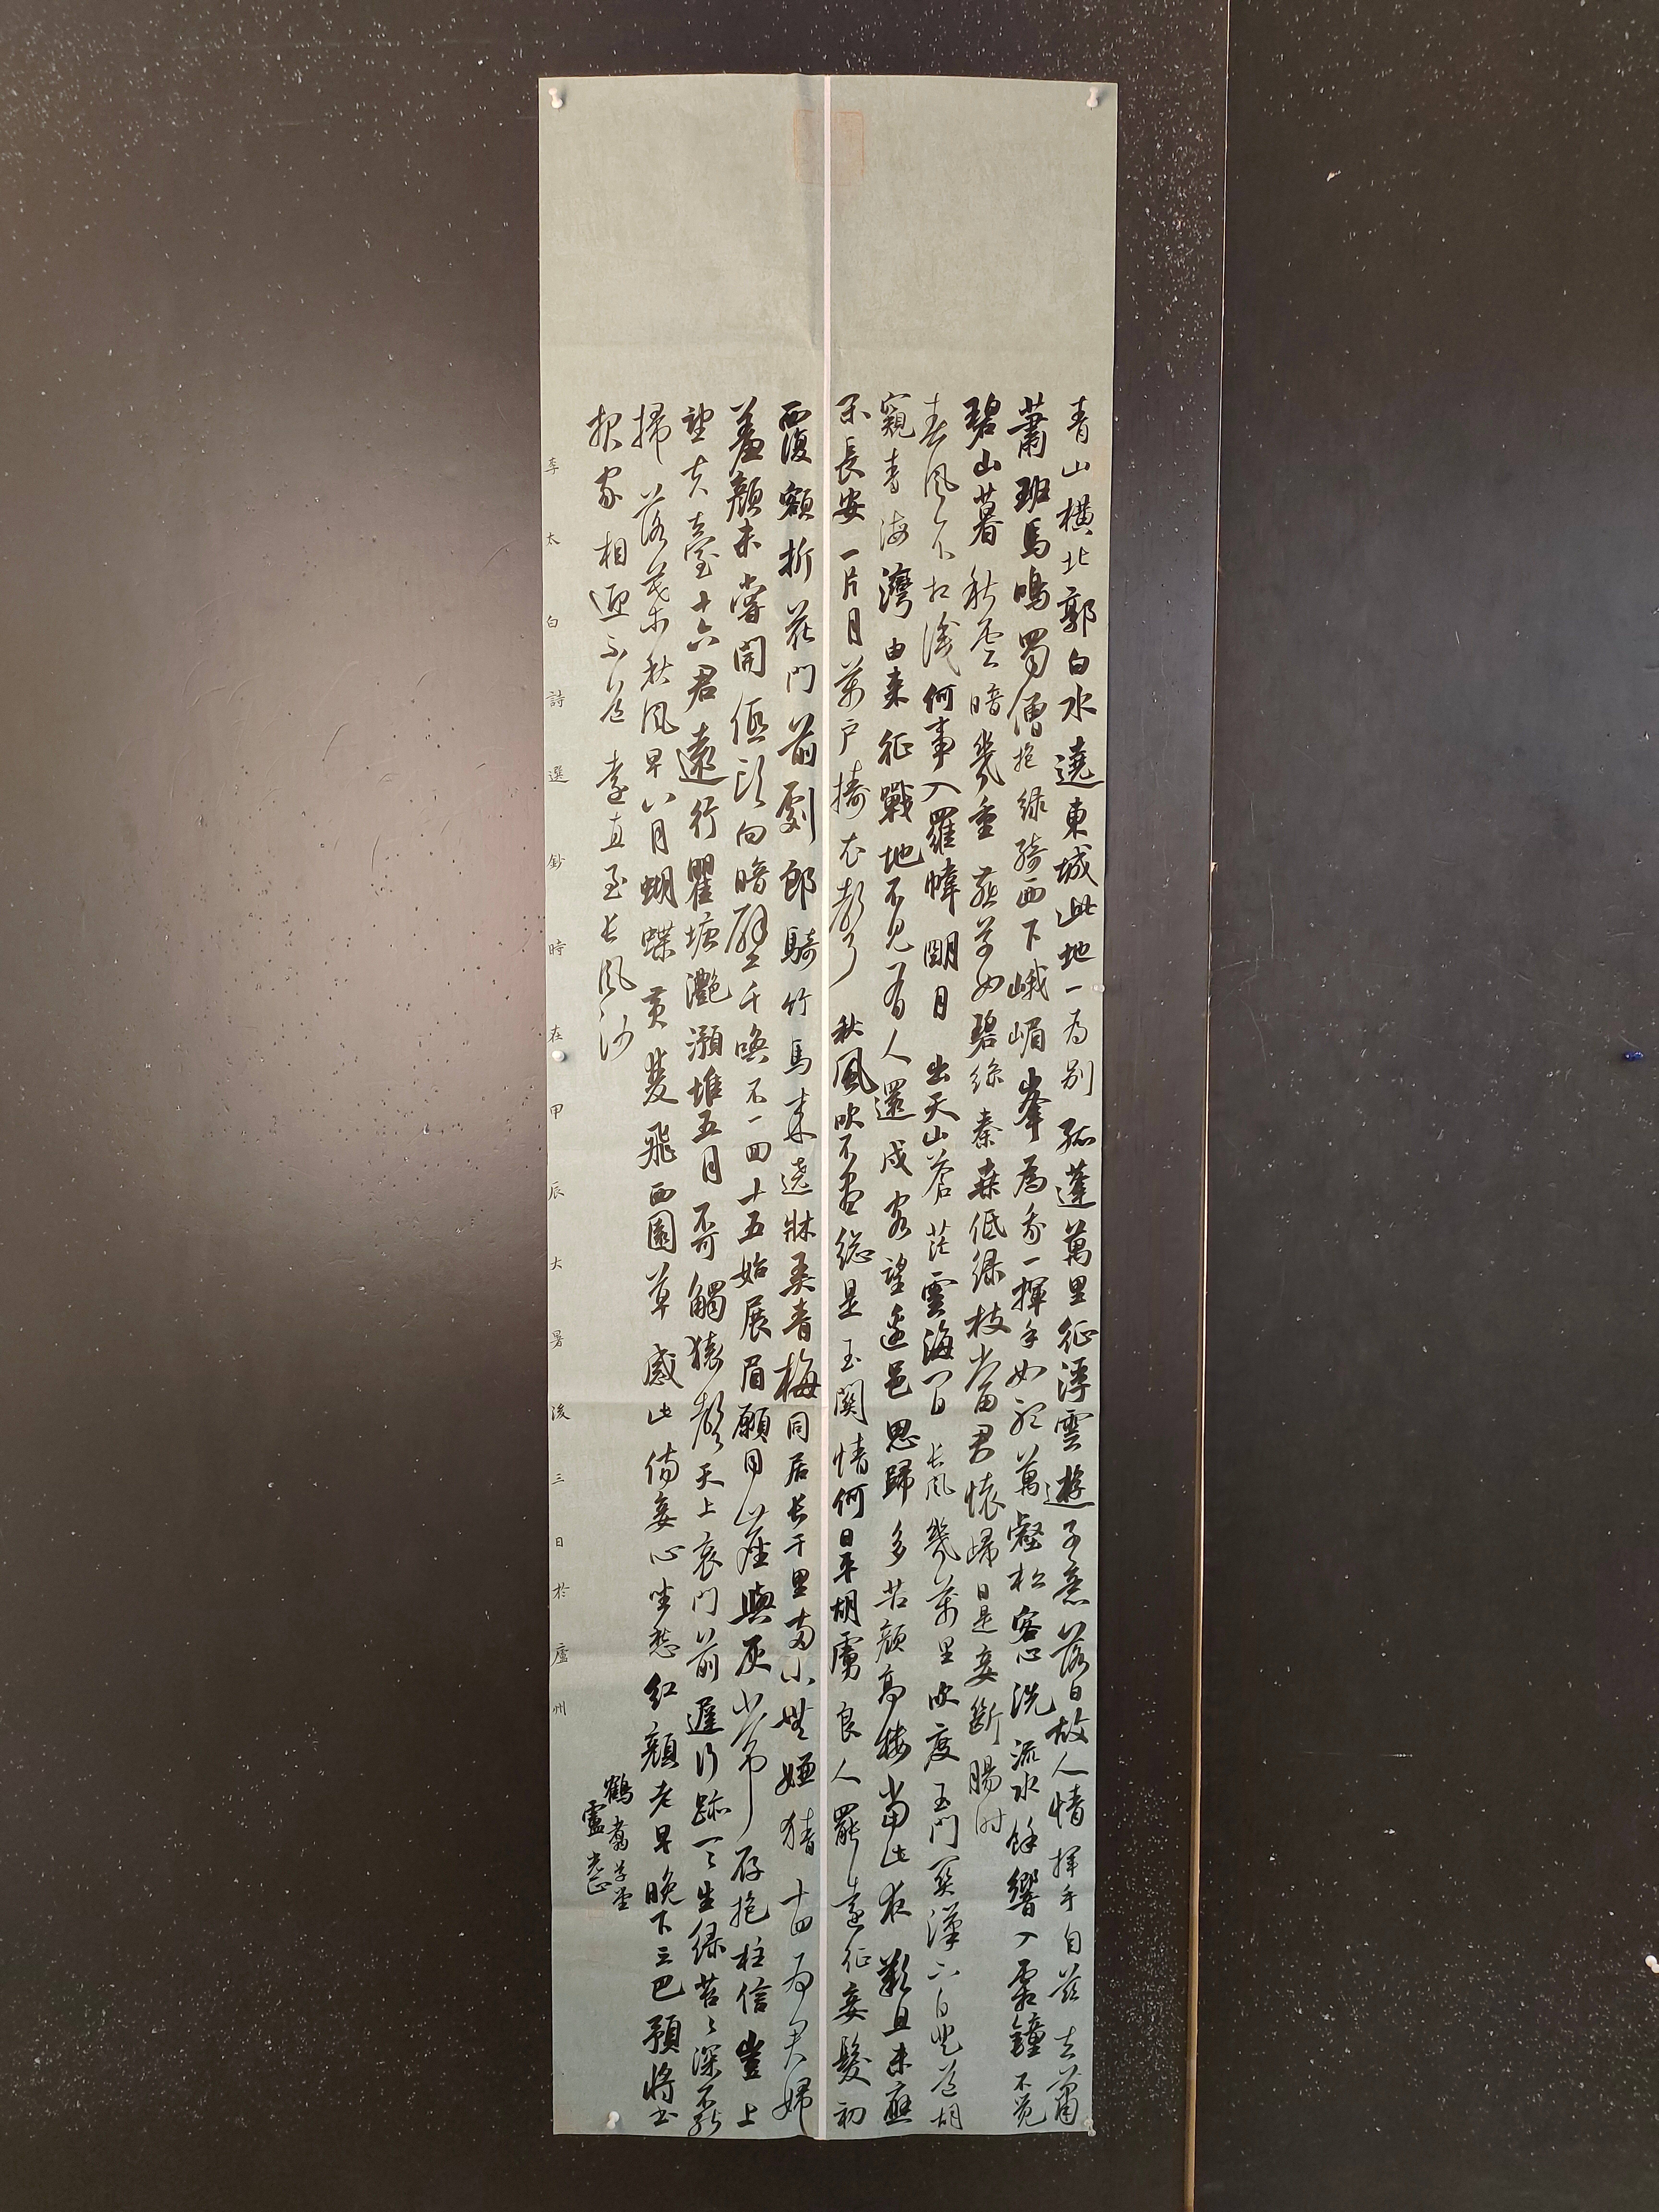 青山橫北郭白水遶東城此地一為別孤蓬萬里征浮雲遊子意落日故人情揮手自茲去蕭
蕭班馬鳴蜀僧抱綠綺西下峨嵋峯為我一揮手如聽萬壑松客心洗流水餘響入霜鐘不覺
碧山暮秋雲暗幾重燕草如碧絲秦桑低綠枝當君懷歸日是妾斷腸時
春風不相識何事入羅幃明月出天山蒼茫雲海間長風幾萬里吹度玉門關漢下白登道胡
窺青海灣由來征戰地不見有人還戍客望邊邑思歸多苦顏高樓當此夜歎息未應
閑長安一片月萬戶擣衣聲秋風吹不盡總是玉關情何日平胡虜良人罷遠征妾髮初
覆額折花門前劇郎騎竹馬來遶牀弄青梅同居長干里兩小無嫌猜十四為君婦
羞顏未嘗開低頭向暗壁千喚不一回十五始展眉願同塵與灰常存抱柱信豈上
望夫臺十六君遠行瞿塘灩澦堆五月不可觸猿聲天上哀門前遲行跡一〻生綠苔〻深不能
掃落葉秋風早八月蝴蝶黃雙飛西園草感此傷妾心坐愁紅顏老早晚下三巴預將書
報家相迎不道遠直至長風沙
鶴翥草堂
盧光正
李太白詩選鈔時在甲辰大暑後三日於廬州